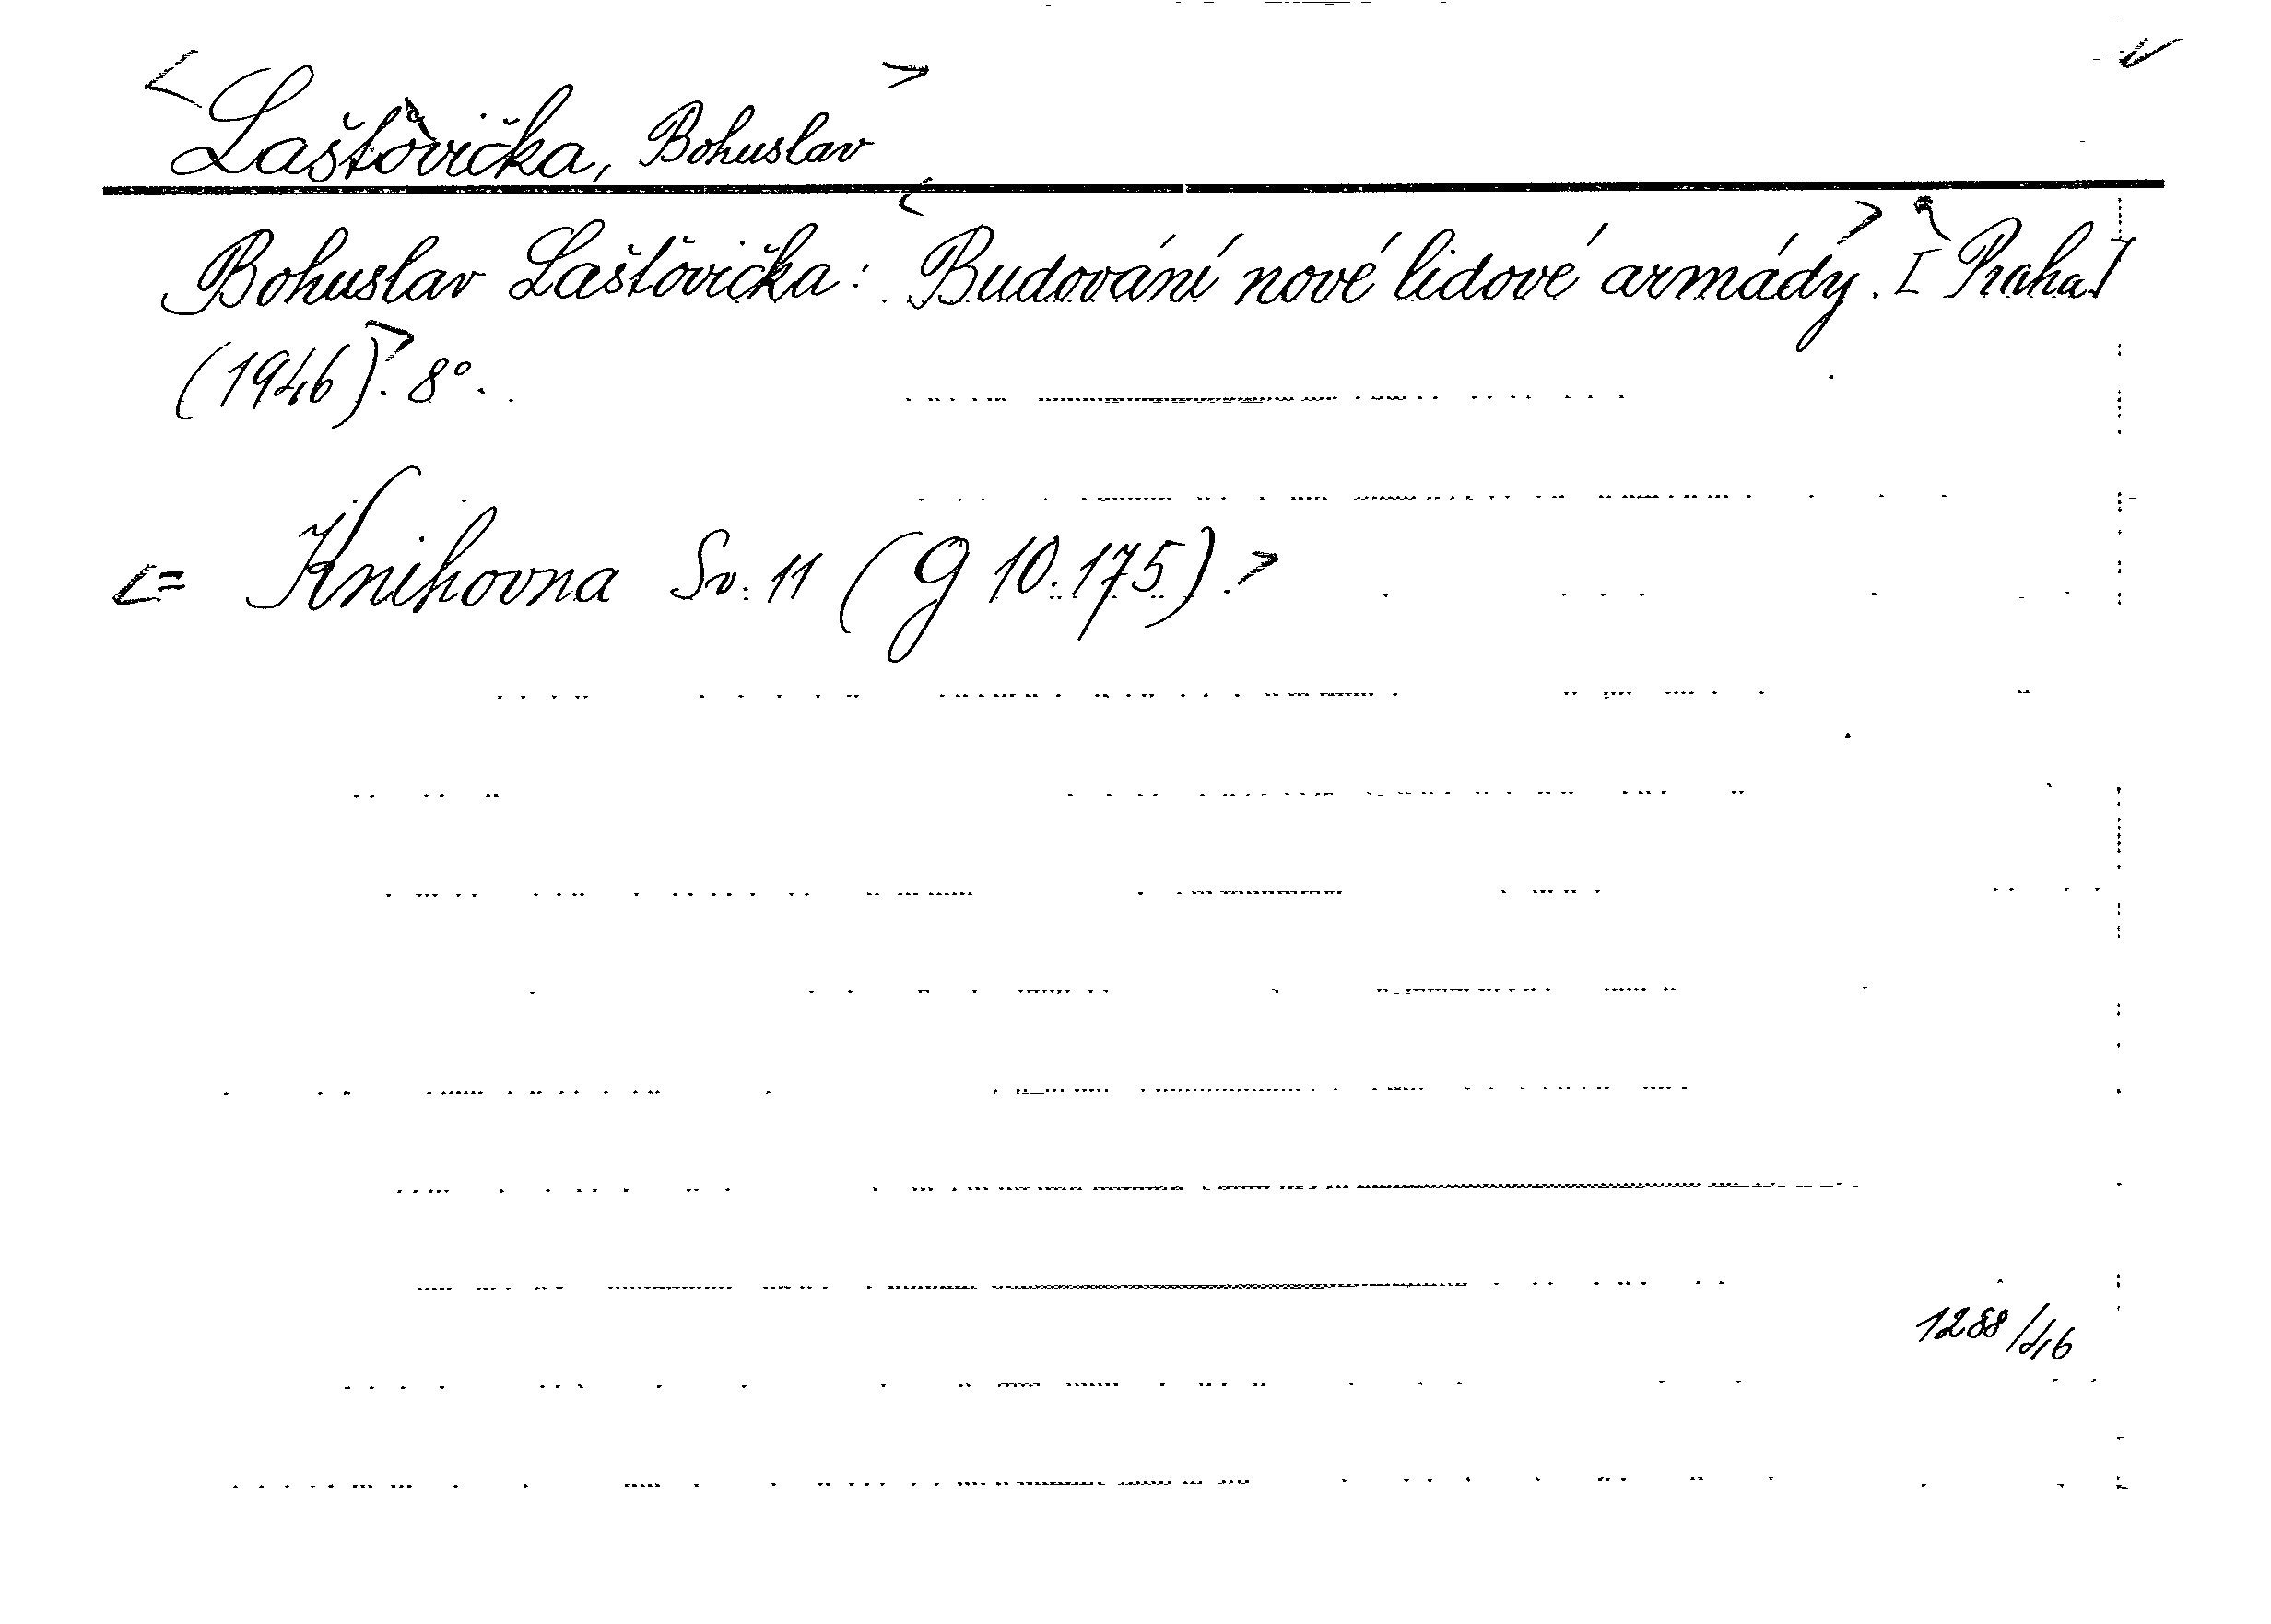 <Laštovička, Bohuslav>
Bohuslav Laštovička: <Budování nové lidové armády.> [Praha]
(1946).> 8°.
<= Knihovna Sv. 11 (g 10.175).>
1288/46